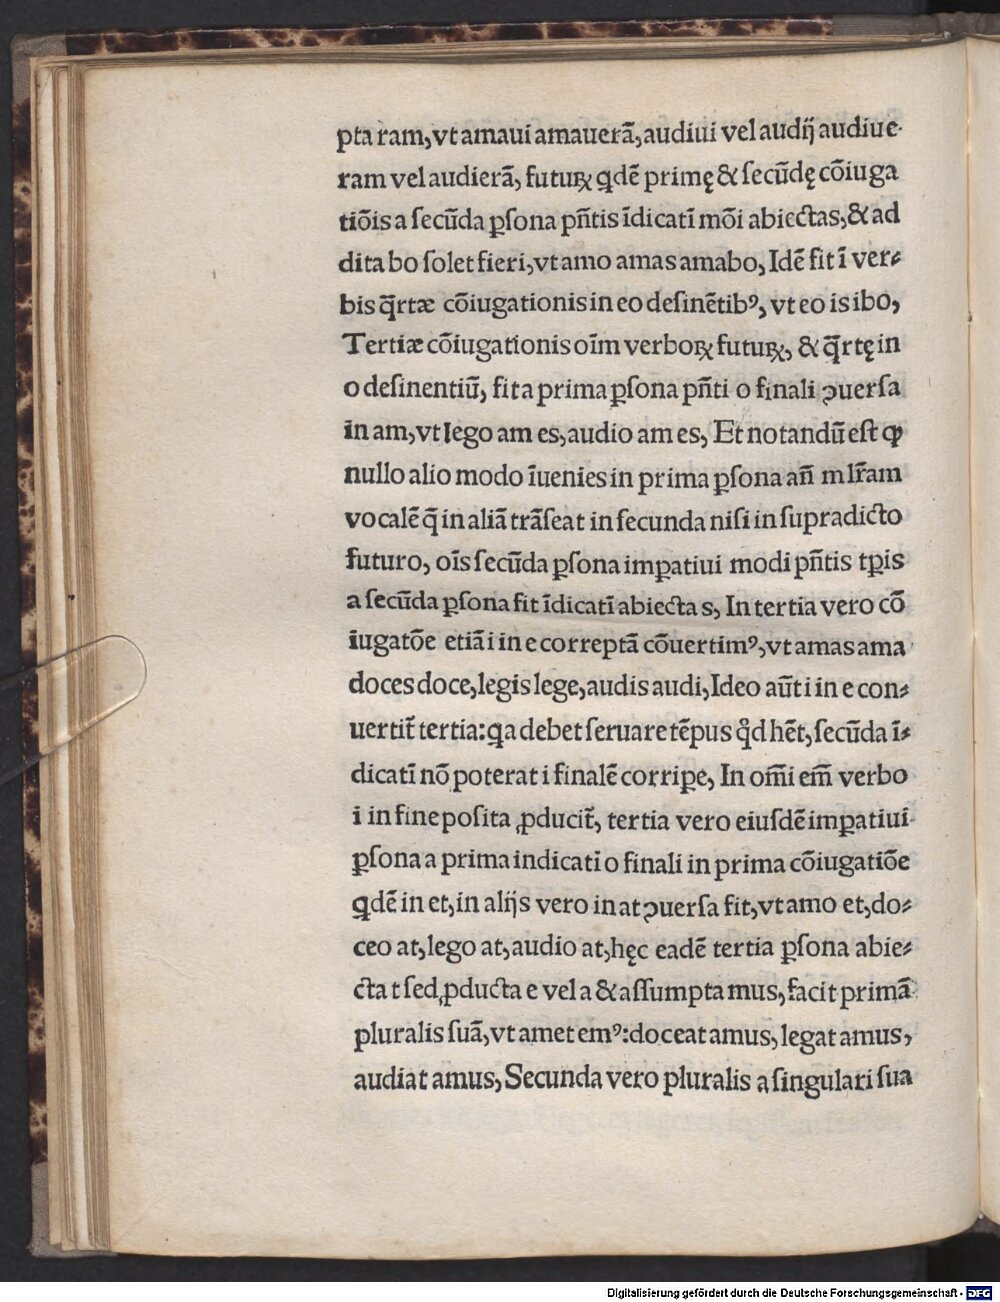 pta ram, vt amaui amauerā, audiui vel audij audiue
ram vel audierā, futuꝝ qdē primę & ſecūdę cōiuga
tiōis a ſecūda ꝑſona pñtis īdicatī mōi abiectas, & ad
dita bo ſolet fieri, vt amo amas amabo, Idē fit ī ver⸗
bis q̄rtæ cōiugationis in eo deſinētibꝰ, vt eo is ibo,
Tertiæ cōiugationis oīm verboꝝ futuꝝ, & q̄rtę in
o deſinentiū, fit a prima ꝑſona pñti o finali ꝯuerſa
in am, vt lego am es, audio am es, Et notandū eſt ꝙ
nullo alio modo īuenies in prima ꝑſona añ m lr̄am
vocalē q̄ in aliā trāſeat in ſecunda niſi in ſupradicto
futuro, oīs ſecūda ꝑſona imꝑatiui modi pñtis tꝑis
a ſecūda ꝑſona fit īdicatī abiecta s, In tertia vero cō
iugatōe etiā i in e correptā cōuertimꝰ, vt amas ama
doces doce, legis lege, audis audi, Ideo aūt i in e con⸗
uertit̄ tertia: qa debet ſeruare tēpus qd̊ hēt, ſecūda ī⸗
dicatī nō poterat i finalē corriꝑe, In om̄i em̄ verbo
i in fine poſita ꝓducit̄, tertia vero eiuſdē imꝑatiui
ꝑſona a prima indicatī o finali in prima cōiugatiōe
qdē in et, in alijs vero in at ꝯuerſa fit, vt amo et, do⸗
ceo at, lego at, audio at, hęc eadē tertia ꝑſona abie⸗
cta t ſed ꝓducta e vel a & aſſumpta mus, facit primā
pluralis ſuā, vt amet emꝰ: doceat amus, legat amus,
audiat amus, Secunda vero pluralis a ſingulari ſua
Digitalisierung gefördert durch die Deutsche Forschungsgemeinschaft - DFG